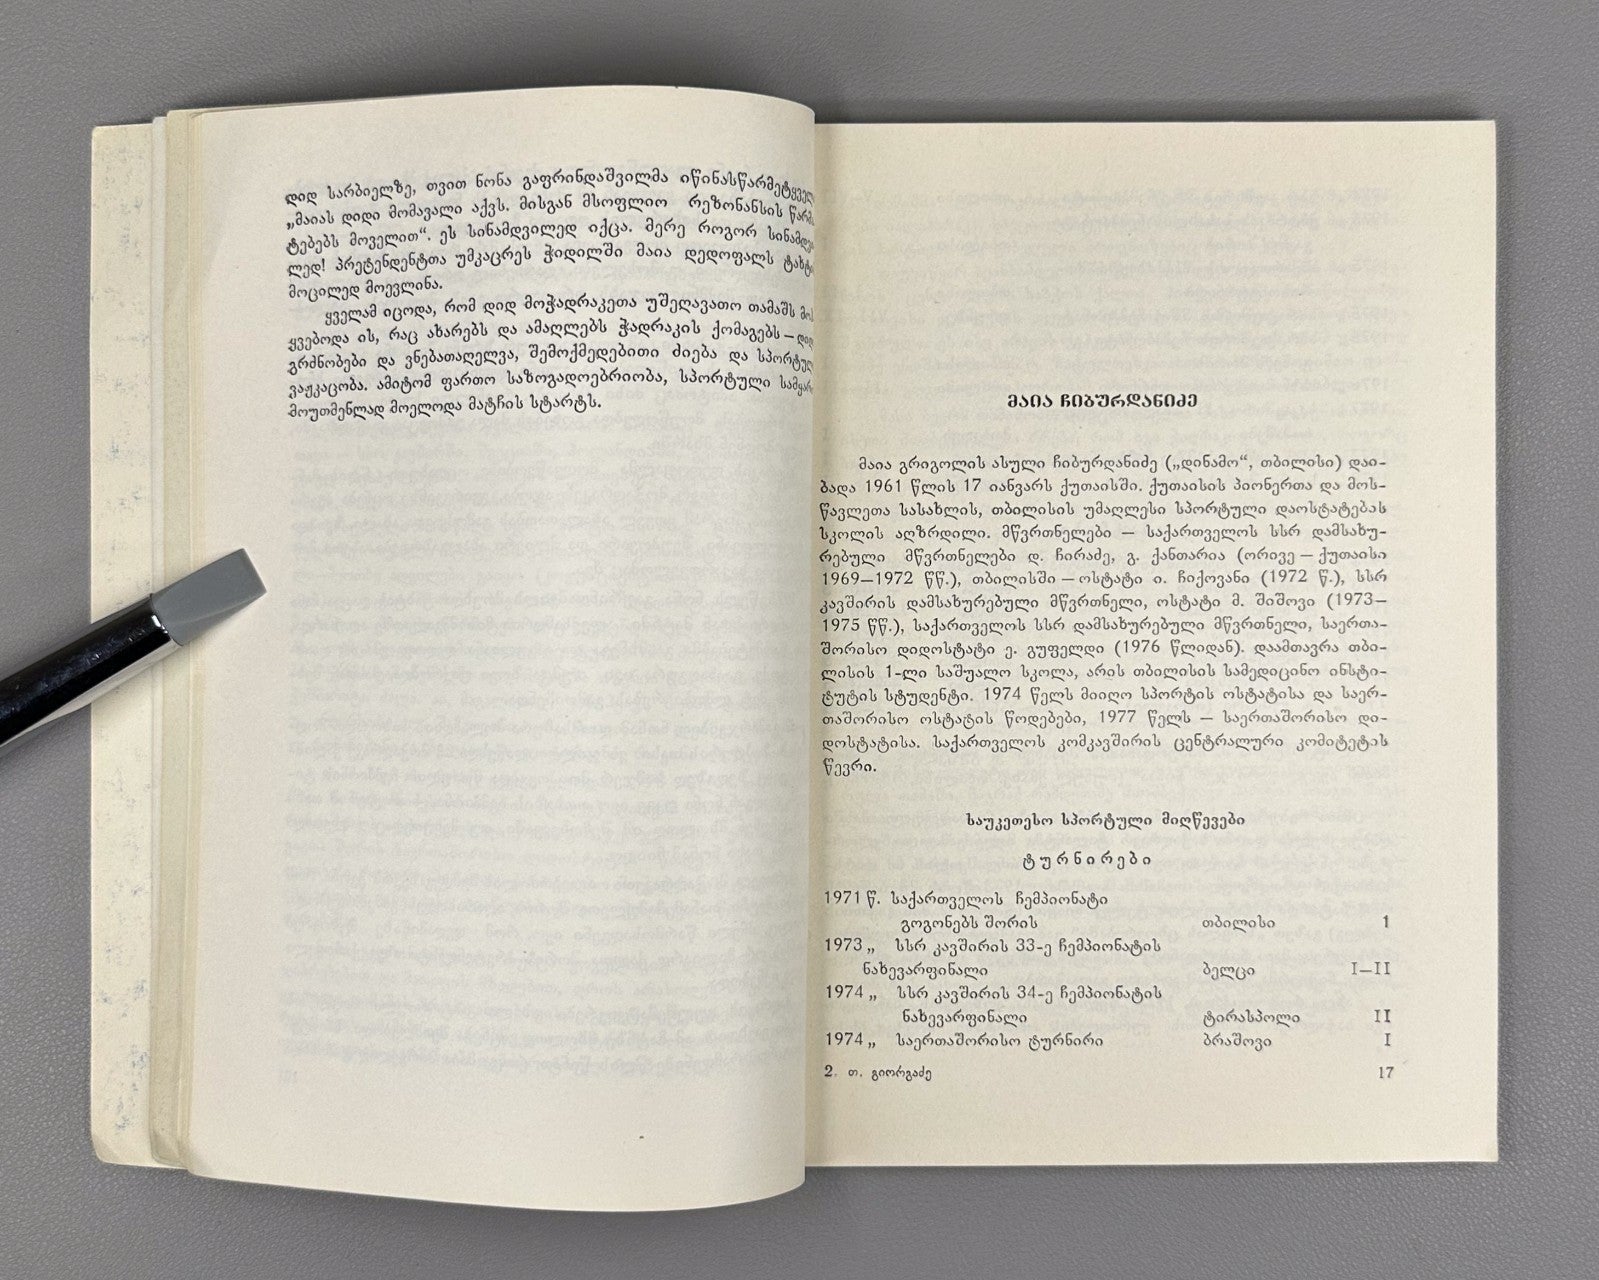 დიდ სარბიელზე, თვით ნონა გაფრინდაშვილმა
„მაიას დიდი მომავალი აქვს. მისგან მსოფლიო რეზონანსის
ტებებს მოველით“. ეს სინამდვილედ იქცა. მერე როგორ
ლედ! პრეტენდენტთა უმკაცრეს ჭიდილში მაია დედოფალს
მოცილედ მოევლინა.
ყველამ იცოდა, რომ დიდ მოჭადრაკეთა უშეღავათო თამაშს
ყვებოდა ის, რაც ახარებს და ამაღლებს ჭადრაკის ქომაგებს —
გრძნობები და ვნებათაღელვა, შემოქმედებითი ძიება და
ვაჟკაცობა. ამიტომ ფართო საზოგადოებრიობა, სპორტული
მოუთმენლად მოელოდა მატჩის სტარტს.
მაია ჩიბურდანიძე
მაია გრიგოლის ასული ჩიბურდანიძე („დინამო“, თბილისი) დაი-
ბადა 1961 წლის 17 იანვარს ქუთაისში. ქუთაისის პიონერთა და მოს-
წავლეთა სასახლის, თბილისის უმაღლესი სპორტული დაოსტატების
სკოლის აღზრდილი. მწვრთნელები — საქართველოს სსრ დამსახუ-
რებული მწვრთნელები დ. ჩირაძე, გ. ქანთარია (ორივე — ქუთაისი
1969—1972 წწ.), თბილისში — ოსტატი ი. ჩიქოვანი (1972 წ.), სსრ
კავშირის დამსახურებული მწვრთნელი, ოსტატი მ. შიშოვი (1973—
1975 წწ.), საქართველოს სსრ დამსახურებული მწვრთნელი, საერთა-
შორისო დიდოსტატი ე. გუფელდი (1976 წლიდან). დაამთავრა თბი-
ლისის 1-ლი საშუალო სკოლა, არის თბილისის სამედიცინო ინსტი-
ტუტის სტუდენტი. 1974 წელს მიიღო სპორტის ოსტატისა და საერ-
თაშორისო ოსტატის წოდებები, 1977 წელს — საერთაშორისო დი-
დოსტატისა. საქართველოს კომკავშირის ცენტრალური კომიტეტის
წევრი.
საუკეთესო სპორტული მიღწევები
ტურნირები
1971 წ. საქართველოს ჩემპიონატი
გოგონებს შორის თბილისი 1
1973 „ სსრ კავშირის 33-ე ჩემპიონატის
ნახევარფინალი ბელცი I—II
1974 „ სსრ კავშირის 34-ე ჩემპიონატის
ნახევარფინალი ტირასპოლი II
1974 „ საერთაშორისო ტურნირი ბრაშოვი I
2. თ. გიორგაძე 17